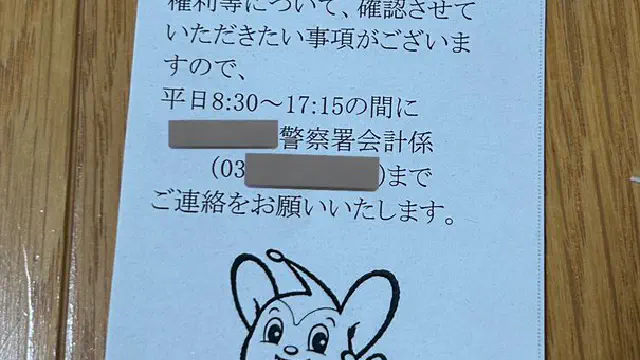 権利等について、確認させて
いただきたい事項がございま
すので、
平日8:30～17:15の間に
警察署会計係
(03 )まで
ご連絡をお願いいたします。